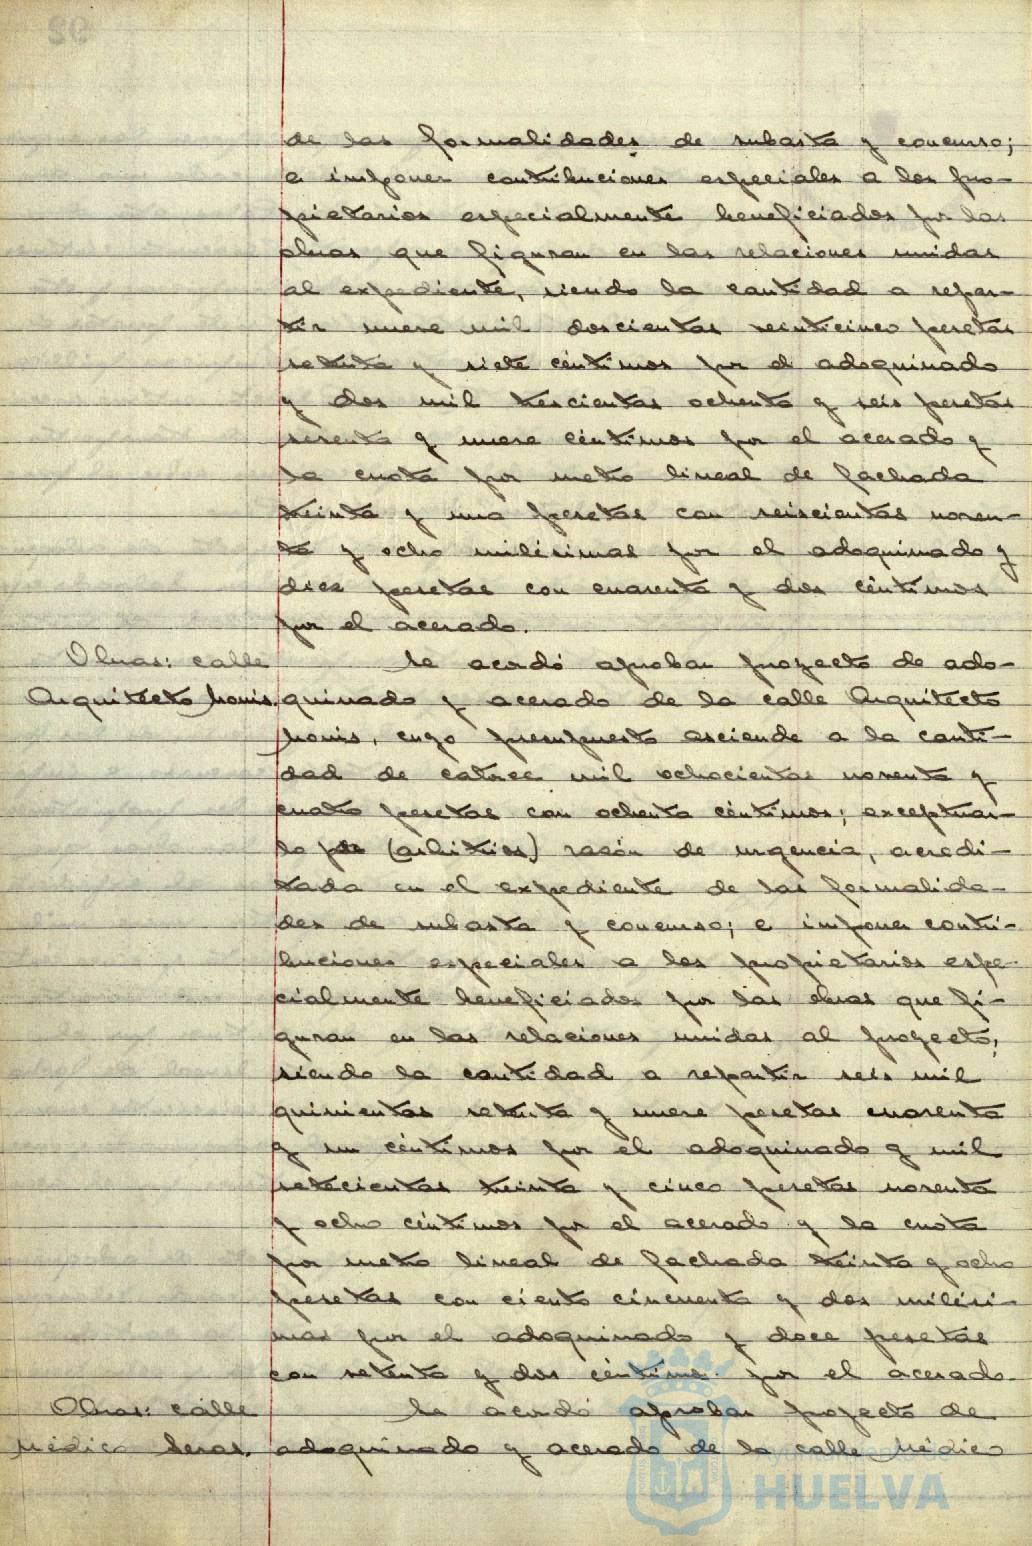 de las formalidades de subasta y concurso;
e imponer contribuciones especiales a los pro-
pietarios especialmente beneficiados por las
obras que figuran en las relaciones unidas
al expediente, siendo la cantidad a repar-
tir nueve mil doscientas veinticinco pesetas
setenta y siete céntimos por el adoquinado
y dos mil trescientas ochenta y seis pesetas
sesenta y nueve céntimos por el acerado y
la cuota por metro lineal de fachada
treinta y una pesetas con seiscientas noven-
ta y ocho milésimas por el adoquinado y
diez pesetas con cuarenta y dos céntimos
por el acerado.
Obras: calle
Arquitecto Monis.
Se acordó aprobar proyecto de ado-
quinado y acerado de la calle Arquitecto
Monis, cuyo presupuesto asciende a la canti-
dad de catorce mil ochocientas noventa y
cuatro pesetas con ochenta céntimos; exceptuar-
lo por (arbitrios) razón de urgencia, acredi-
tada en el expediente de las formalida-
des de subasta y concurso; e imponer contri-
buciones especiales a los propietarios espe-
cialmente beneficiados por las obras que fi-
guran en las relaciones unidas al proyecto,
siendo la cantidad a repartir seis mil
quinientas setenta y nueve pesetas cuarenta
y un céntimos por el adoquinado y mil
setecientas treinta y cinco pesetas noventa
y ocho céntimos por el acerado y la cuota
por metro lineal de fachada treinta y ocho
pesetas con ciento cincuenta y dos milési-
mas por el adoquinado y doce pesetas
con setenta y dos céntimos por el acerado.
Obras: calle
Médico Seras.
Se acordó aprobar proyecto de
adoquinado y acerado de la calle Médico
Ayuntamiento de
HUELVA